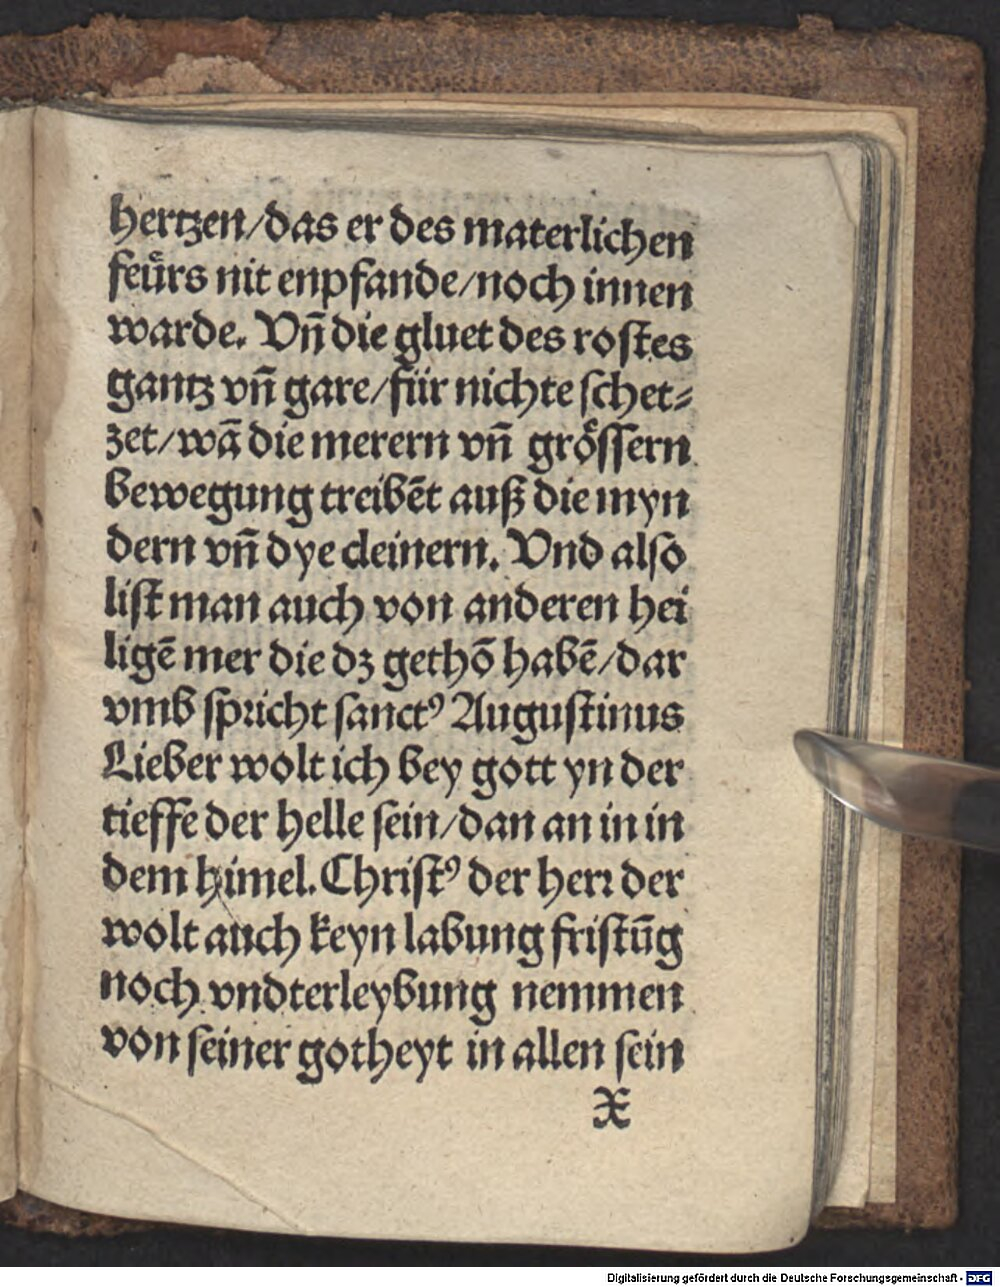 hertzen/das er des materlichen
feürs nit enpfande/noch innen
warde. Vn̄ die gluet des rostes
gantz vn̄ gare/für nichte schet⸗
zet/wā die merern vn̄ grössern
bewegung treibēt auß die myn
dern vn̄ dye cleinern. Vnd also
list man auch von anderen hei
ligē mer die dz gethō habē/dar
vmb spricht sanctꝰ Augustinus
Lieber wolt ich bey gott yn der
tieffe der helle sein/dan an in in
dem himel. Christꝰ der herr der
wolt auch keyn labung fristūg
noch vndterleybung nemmen
von seiner gotheyt in allen sein
X
Digitalisierung gefördert durch die Deutsche Forschungsgemeinschaft - DFG